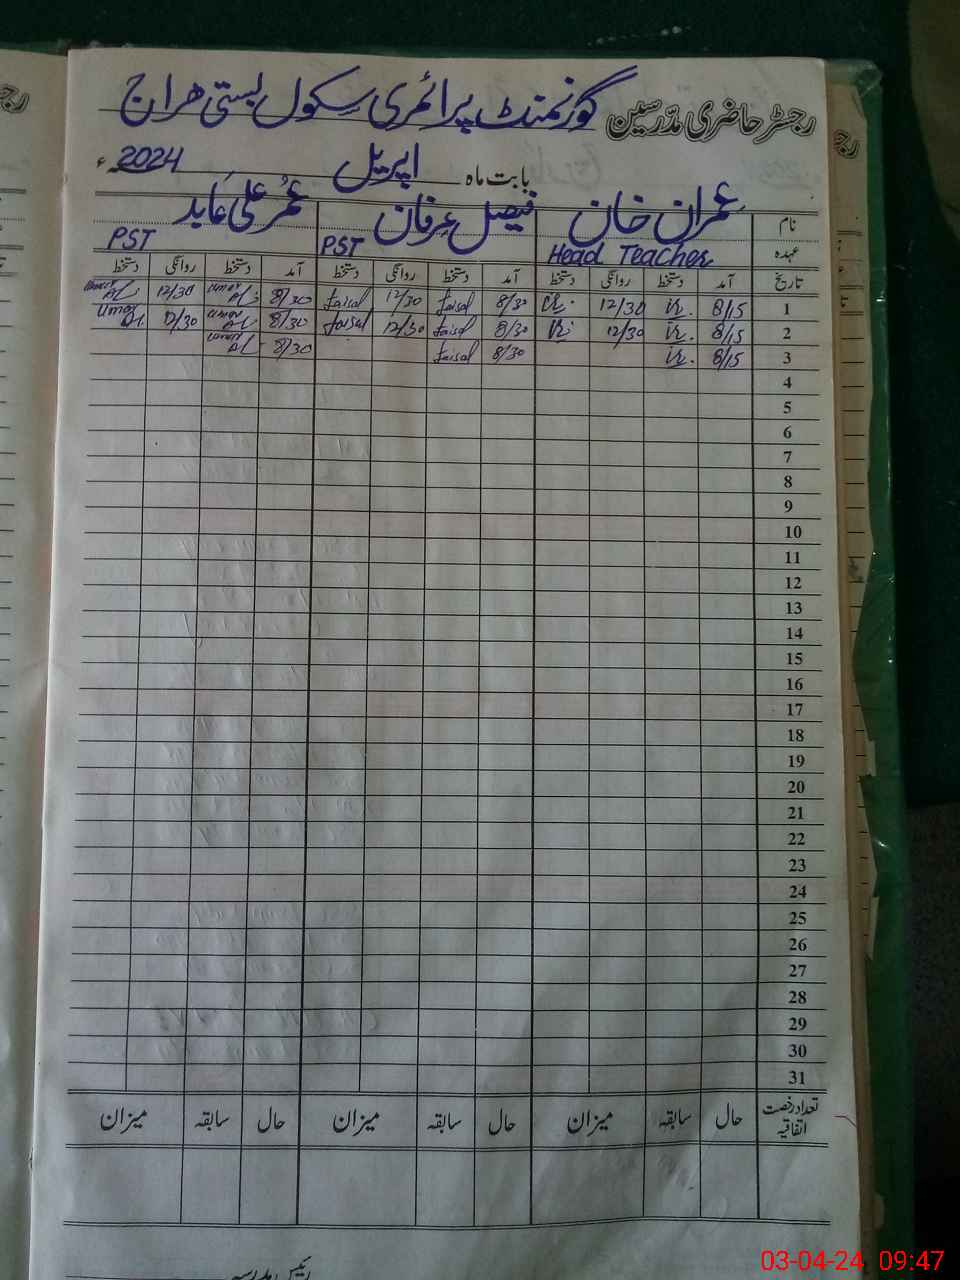 رجسٹر حاضری مدرسین گورنمنٹ پرائمری سکول بستی ھراج
بابت ماہ اپریل 2024ء
نام عمران خان فیصل عرفان عمر علی عابد
عہدہ Head Teacher PST PST
تاریخ آمد دستخط روانگی دستخط آمد دستخط روانگی دستخط آمد دستخط روانگی دستخط
1 8/15 12/30 8/30 faisal 12/30 faisal 8/30 umar 12/30
2 8/15 12/30 8/30 faisal 12/30 faisal 8/30 umar 12/30 umar
3 8/15 8/30 faisal 8/30 umar
4
5
6
7
8
9
10
11
12
13
14
15
16
17
18
19
20
21
22
23
24
25
26
27
28
29
30
31
تعداد رخصت اتفاقیہ حال سابقہ میزان حال سابقہ میزان حال سابقہ میزان
رئیس مدرسہ
03-04-24 09:47